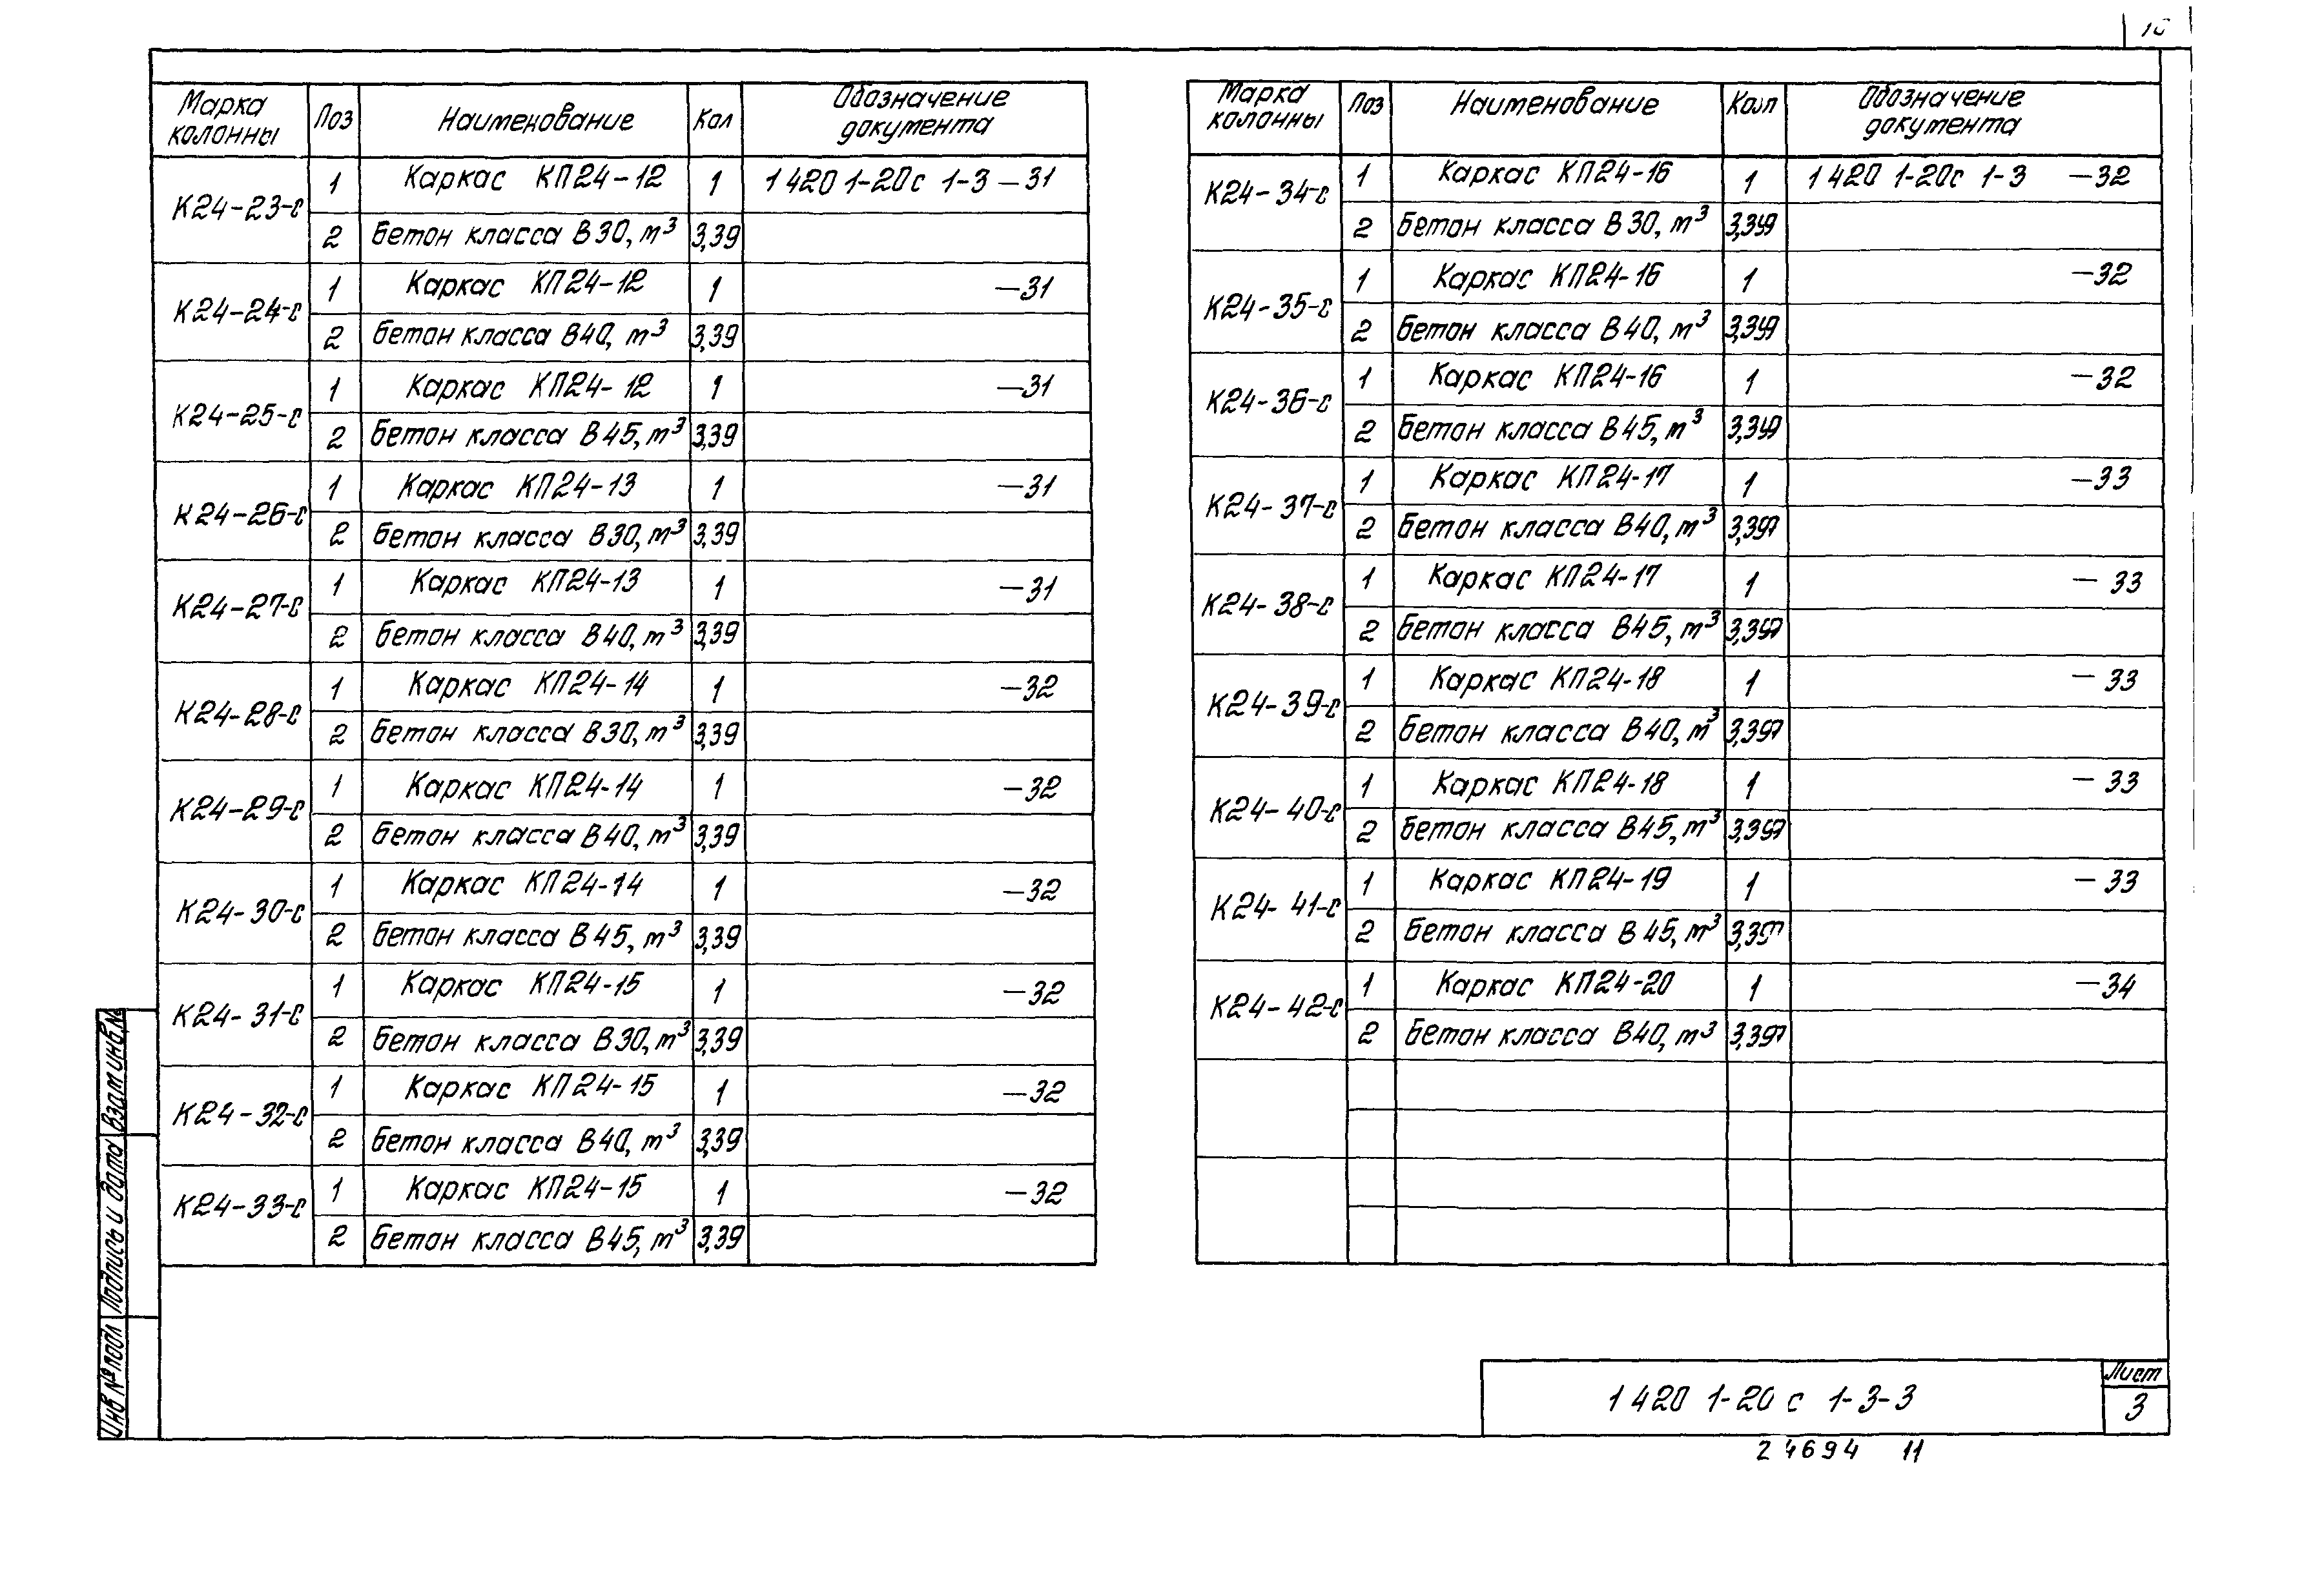 Марка колонны Поз Наименование Кол Обозначение документа
К24-23-с 1 Каркас КП24-12 1 1 420 1-20с 1-3 -31
2 Бетон класса В30, м³ 3,39
К24-24-с 1 Каркас КП24-12 1 -31
2 Бетон класса В40, м³ 3,39
К24-25-с 1 Каркас КП24-12 1 -31
2 Бетон класса В45, м³ 3,39
К24-26-с 1 Каркас КП24-13 1 -31
2 Бетон класса В30, м³ 3,39
К24-27-с 1 Каркас КП24-13 1 -31
2 Бетон класса В40, м³ 3,39
К24-28-с 1 Каркас КП24-14 1 -32
2 Бетон класса В30, м³ 3,39
К24-29-с 1 Каркас КП24-14 1 -32
2 Бетон класса В40, м³ 3,39
К24-30-с 1 Каркас КП24-14 1 -32
2 Бетон класса В45, м³ 3,39
К24-31-с 1 Каркас КП24-15 1 -32
2 Бетон класса В30, м³ 3,39
К24-32-с 1 Каркас КП24-15 1 -32
2 Бетон класса В40, м³ 3,39
К24-33-с 1 Каркас КП24-15 1 -32
2 Бетон класса В45, м³ 3,39
Марка колонны Поз Наименование Кол Обозначение документа
К24-34-с 1 Каркас КП24-16 1 1 420 1-20с 1-3 -32
2 Бетон класса В30, м³
К24-35-с 1 Каркас КП24-16 1 -32
2 Бетон класса В40, м³
К24-36-с 1 Каркас КП24-16 1 -32
2 Бетон класса В45, м³
К24-37-с 1 Каркас КП24-17 1 -33
2 Бетон класса В40, м³
К24-38-с 1 Каркас КП24-17 1 -33
2 Бетон класса В45, м³
К24-39-с 1 Каркас КП24-18 1 -33
2 Бетон класса В40, м³
К24-40-с 1 Каркас КП24-18 1 -33
2 Бетон класса В45, м³
К24-41-с 1 Каркас КП24-19 1 -33
2 Бетон класса В45, м³
К24-42-с 1 Каркас КП24-20 1 -34
2 Бетон класса В40, м³
Инв № подл Подпись и дата Взам инв №
1 420 1-20 с 1-3-3
Лист
3
24694 11